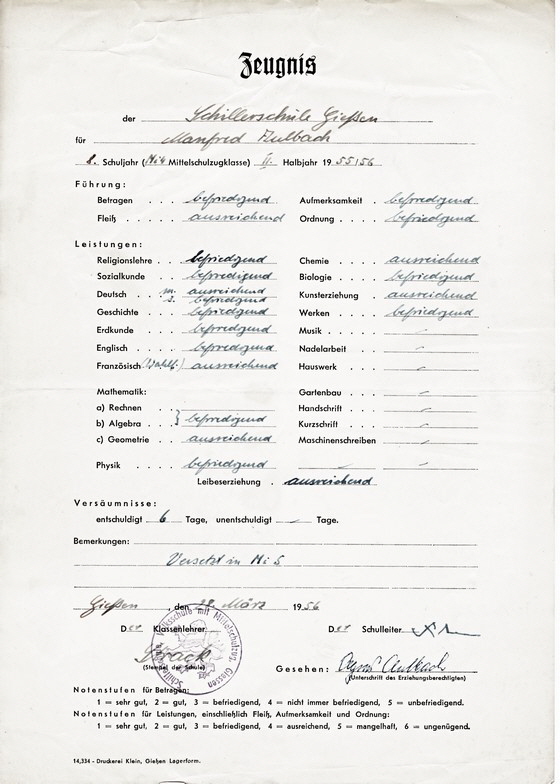 Zeugnis
der Schillerschule Gießen
für Manfred Aulbach
8. Schuljahr (Mi4 Mittelschulzugklasse) II. Halbjahr 1955/56
Führung:
Betragen . . . befriedigend Aufmerksamkeit . befriedigend
Fleiß . . . . ausreichend Ordnung . . . . befriedigend
Leistungen:
Religionslehre . . befriedigend Chemie . . . . ausreichend
Sozialkunde . . befriedigend Biologie . . . . befriedigend
Deutsch . . m. ausreichend Kunsterziehung . ausreichend
s. befriedigend
Geschichte . . . befriedigend Werken . . . . befriedigend
Erdkunde . . . befriedigend Musik . . . . . –
Englisch . . . befriedigend Nadelarbeit . . . –
Französisch (Wahlf.) ausreichend Hauswerk . . . –
Mathematik: Gartenbau . . . . –
a) Rechnen . . . Handschrift . . . –
b) Algebra . . . } befriedigend Kurzschrift . . . –
c) Geometrie . . ausreichend Maschinenschreiben –
Physik . . . . befriedigend – –
Leibeserziehung . ausreichend
Versäumnisse:
entschuldigt 6 Tage, unentschuldigt – Tage.
Bemerkungen:
Versetzt in Mi 5
Gießen, den 28. März 1956
Der Klassenlehrer Der Schulleiter
(Stempel der Schule) Gesehen: Aulbach
(Unterschrift des Erziehungsberechtigten)
Volksschule mit Mittelschulzug, Giessen
Notenstufen für Betragen:
1 = sehr gut, 2 = gut, 3 = befriedigend, 4 = nicht immer befriedigend, 5 = unbefriedigend.
Notenstufen für Leistungen, einschließlich Fleiß, Aufmerksamkeit und Ordnung:
1 = sehr gut, 2 = gut, 3 = befriedigend, 4 = ausreichend, 5 = mangelhaft, 6 = ungenügend.
14,334 - Druckerei Klein, Gießen Lagerform.